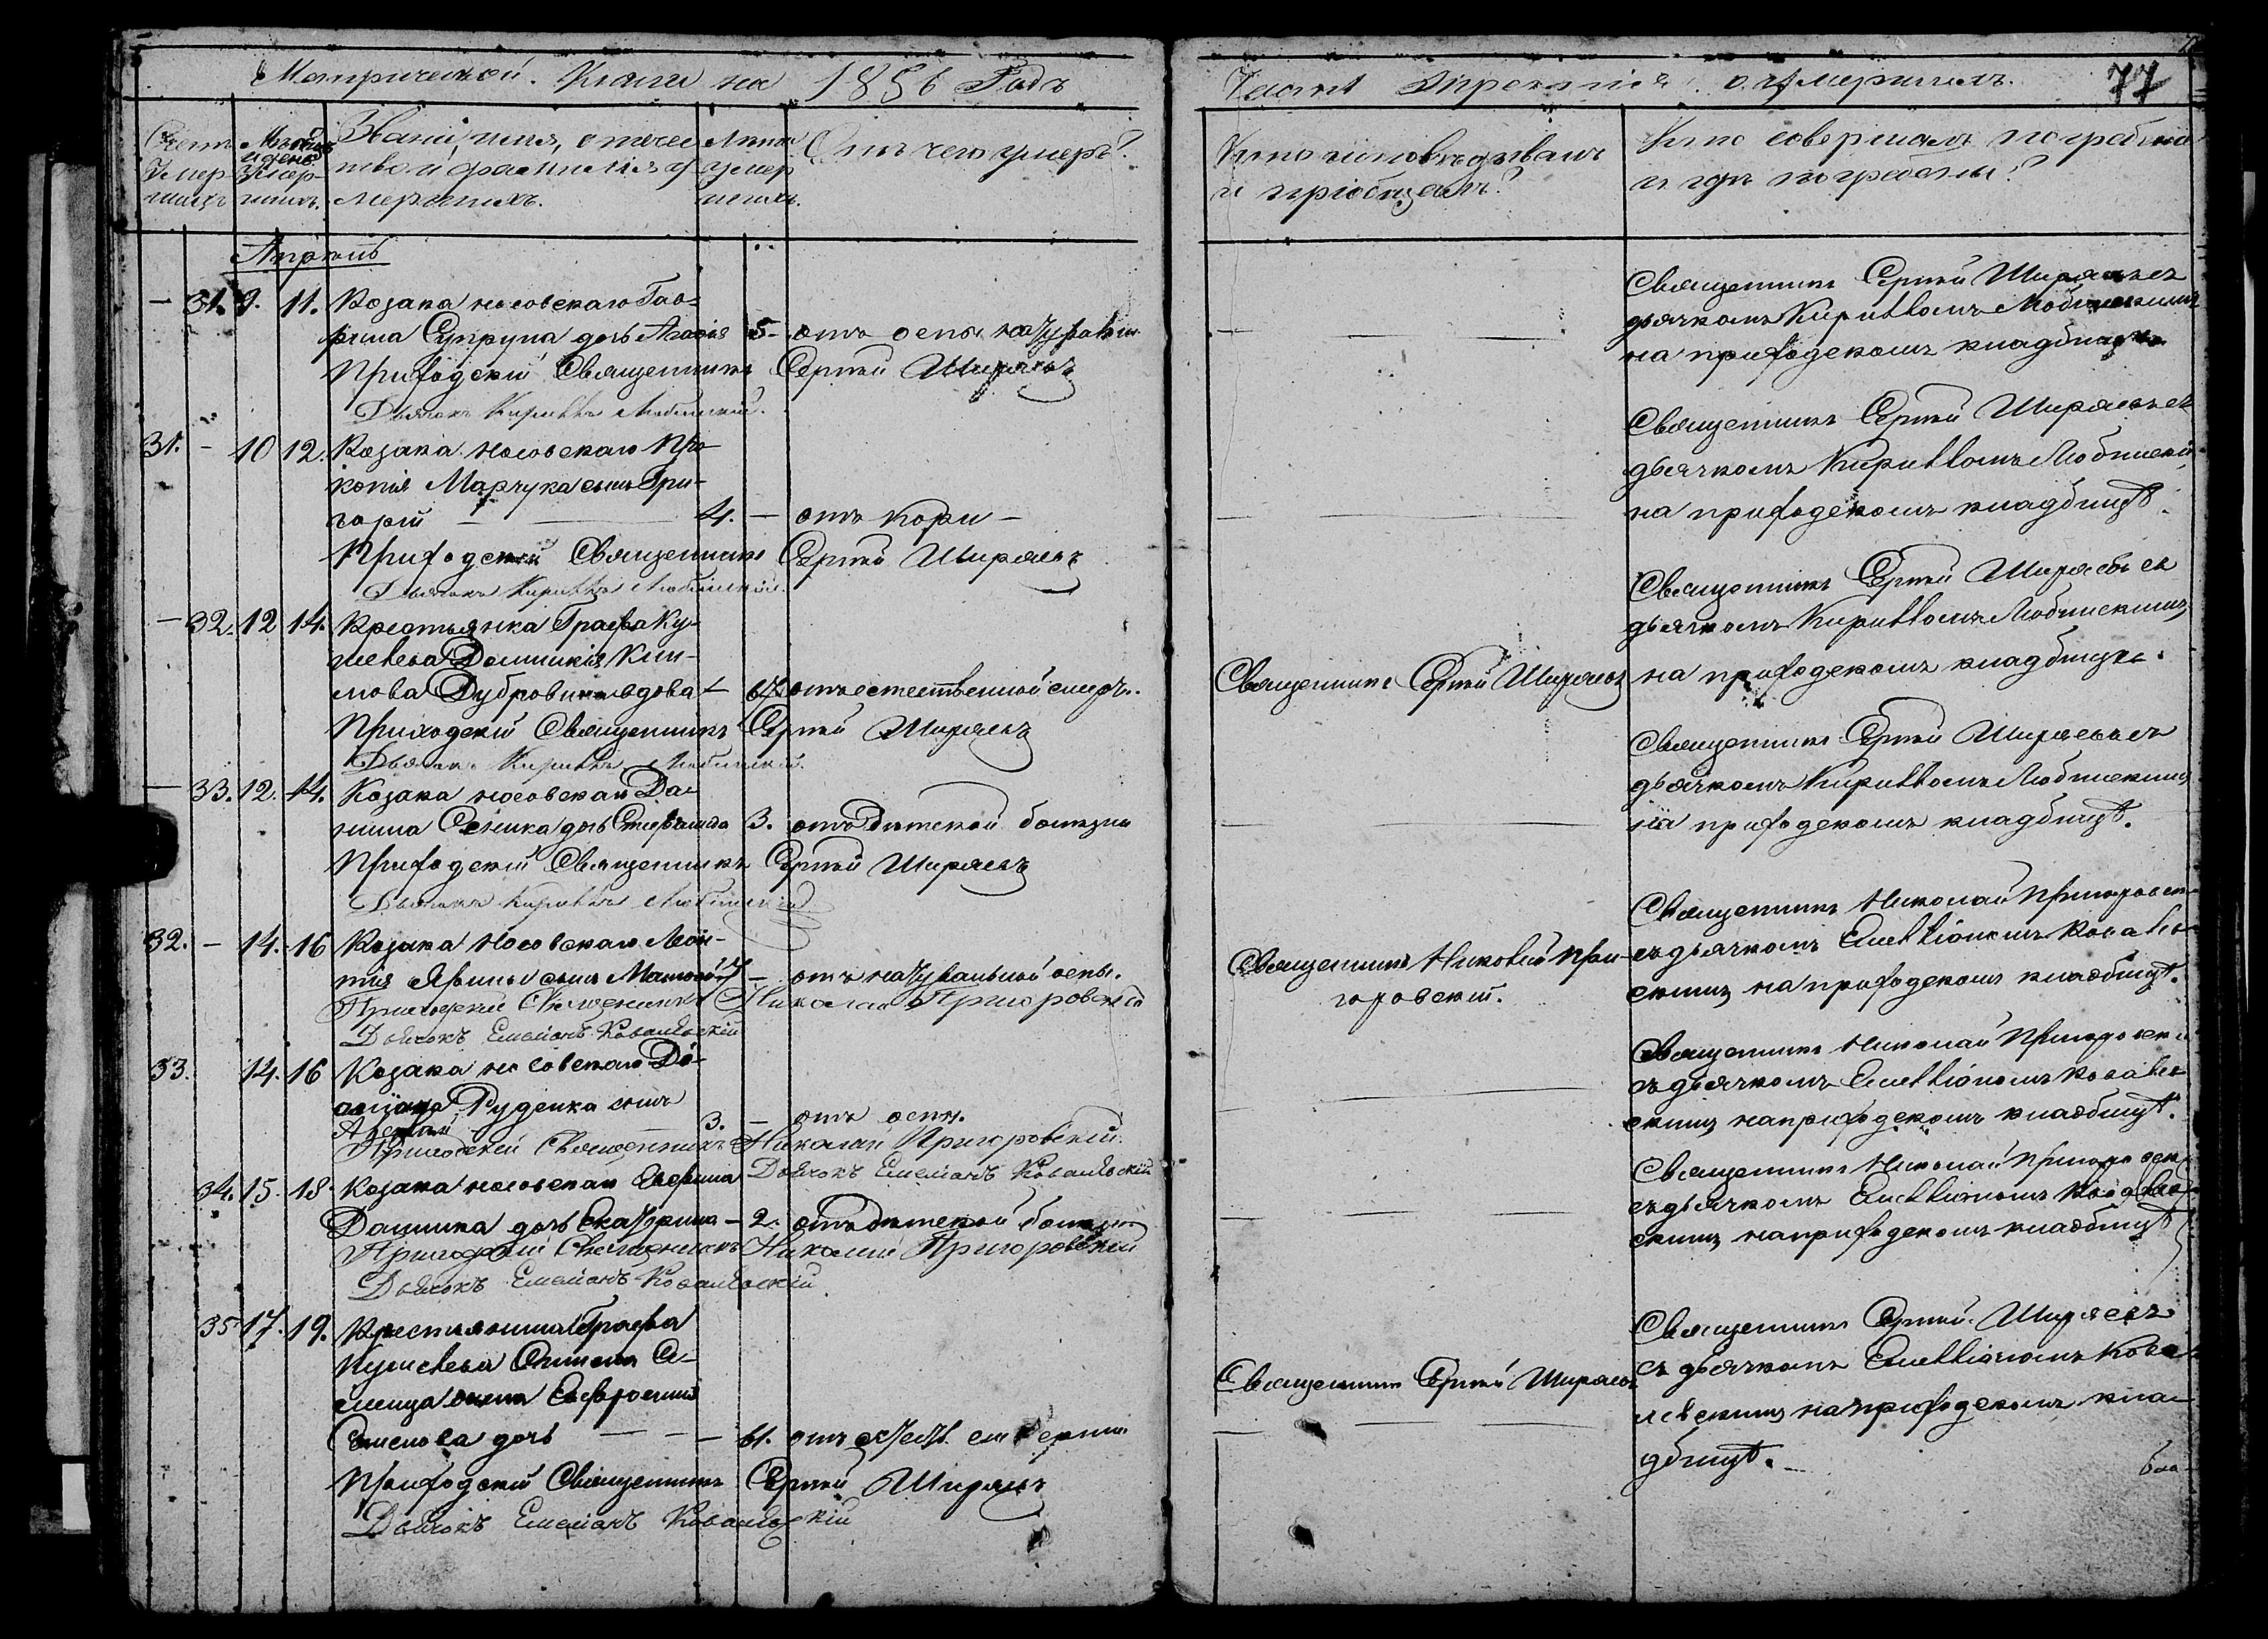 Метрической Книги на 1856 Годъ
Части Третіей о умершихъ.
77
Счетъ умершихъ
Мѣсяцъ и день умершихъ.
Званіе, имя, отечество и фамилія умершихъ.
Лѣта умершихъ.
Отъ чего умеръ?
Кто исповѣдывалъ и пріобщалъ?
Кто совершалъ погребеніе и гдѣ погребены?
Апрѣль
– 31. 9. 11. Козака носовскаго Гав-
рiила Супруна дочь Агафія 5 – отъ оспы натуральн
Приходскій Священникъ Сергѣй Ширяевъ
Дьячокъ Кириллъ Любинскій.
Священникъ Сергѣй Ширяевъ съ
дьячкомъ Кирилломъ Любинскимъ
на приходскомъ кладбищѣ
31. – 10 12. Козака носовскаго Про-
копія Марчука сынъ Гри-
горій – 4. – отъ кори –
Приходскій Священникъ Сергѣй Ширяевъ
Дьячокъ Кириллъ Любинскій.
Священникъ Сергѣй Ширяевъ съ
дьячкомъ Кирилломъ Любински
на приходскомъ кладбищѣ.
– 32. 12 14. Крестьянка Графа Ку-
шелева Домникія Кли-
мова Дубровина вдова – отъ естественной смерт.
Приходскій Священникъ Сергѣй Ширяевъ
Дьячокъ Кириллъ Любинскій.
Священникъ Сергѣй Ширяевъ
Священникъ Сергѣй Ширяевъ съ
дьячкомъ Кирилломъ Любинскимъ
на приходскомъ кладбищѣ.
– 33. 12. 14. Козака носовскаго Да-
ніила Сѣника дочь Стефанида 3. отъ дѣтской болѣзни
Приходскій Священникъ Сергѣй Ширяевъ
Дьячокъ Кириллъ Любинскій
Священникъ Сергѣй Ширяевъ съ
дьячкомъ Кирилломъ Любинскимъ
на приходскомъ кладбищѣ.
32. – 14. 16 Козака Носовскаго Леон-
тія Ярины сынъ – отъ натуральной оспы.
Приходскій Священникъ Николай Пригоровскій
Дьячокъ Емеліанъ Ковалевскій
Священникъ Николай При-
горовскій.
Священникъ Николай Пригоровск
съ дьячкомъ Емелліаномъ Ковалев
скимъ на приходскомъ кладбищѣ.
33. 14. 16 Козака носовскаго
Руденка сынъ
3. – отъ оспы.
Приходскій Священникъ Николай Пригоровскій.
Дьячокъ Емеліанъ Ковалевскій
Священникъ Николай Пригоровск
съ дьячкомъ Емелліаномъ Ковалев
скимъ на приходскомъ кладбищѣ.
34. 15. 18. Козака носовскаго Евфима
Дашика дочь Екатерина – 2. отъ дѣтской болѣзни
Приходскій Священникъ Николай Пригоровскій
Дьячокъ Емеліанъ Ковалевскій
Священникъ Николай Пригоровск
съ дьячкомъ Емелліаномъ Ковалев
скимъ на приходскомъ кладбищѣ
35 17. 19. Крестьянина Графа
Кушелева
жена Евфросинія
дочь – – – 61. отъ естест. смерти
Приходскій Священникъ Сергѣй Ширяевъ
Дьячокъ Емеліанъ Ковалевскій
Священникъ Сергѣй Ширяевъ
Священникъ Сергѣй Ширяевъ
съ дьячкомъ Емелліаномъ Кова
левскимъ на приходскомъ кла
дбищѣ.